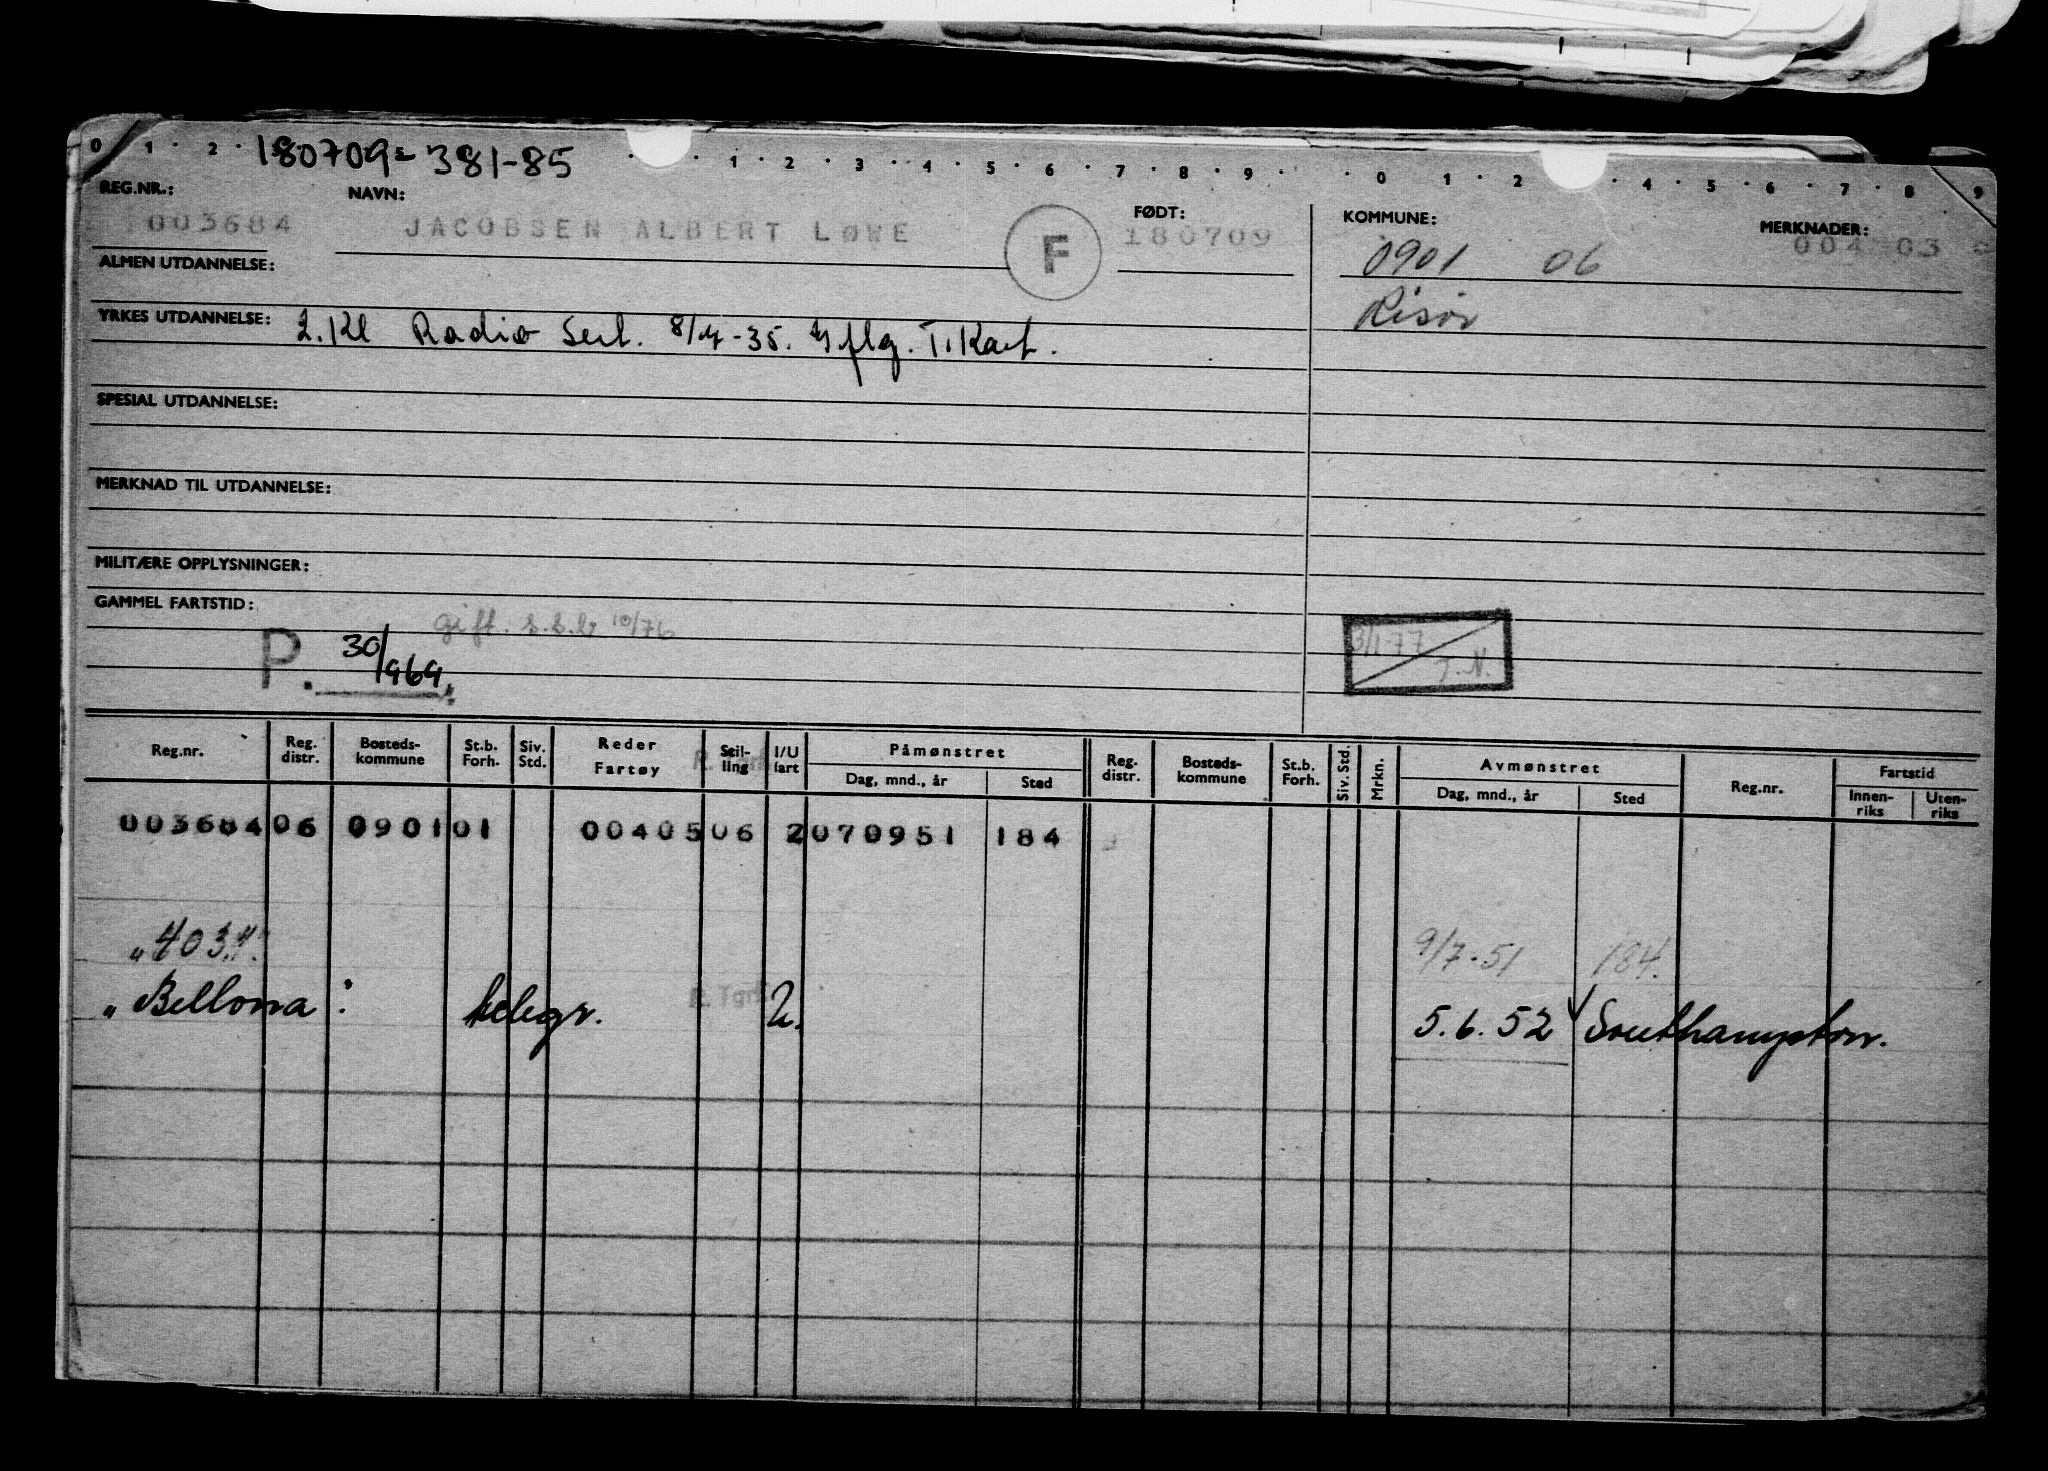 0 1 2 3 1 2 3 4 5 6 7 8 9 0 1 2 4 5 6 7 8 9
180709-381-85
REG.NR.: NAVN: FØDT: KOMMUNE: MERKNADER:
003684 JACOBSEN ALBERT LØWE F 180709 0901 06 004 03
ALMEN UTDANNELSE: Risør
YRKES UTDANNELSE: 2.Kl Radio Sert. 8/4-35. flg. T.Kart.
SPESIAL UTDANNELSE:
MERKNAD TIL UTDANNELSE:
MILITÆRE OPPLYSNINGER:
GAMMEL FARTSTID: gift. s.b.b 10/76
P. 30/969. 3/1-77 J.N.
Reg.nr. Reg. distr. Bosteds-kommune St.b. Forh. Siv. Std. Reder Fartøy Stil-ling I/U fart Påmønstret Dag, mnd., år Sted Reg. distr. Bosteds-kommune St.b. Forh. Siv. Std. Mrkn. Avmønstret Dag, mnd., år Sted Reg.nr. Fartstid Innen-riks Uten-riks
003684 06 0901 01 00405 06 2 070951 184
"403." 9/7-51 184.
"Bellona": telegr. 2. 5.6.52 Southampton.